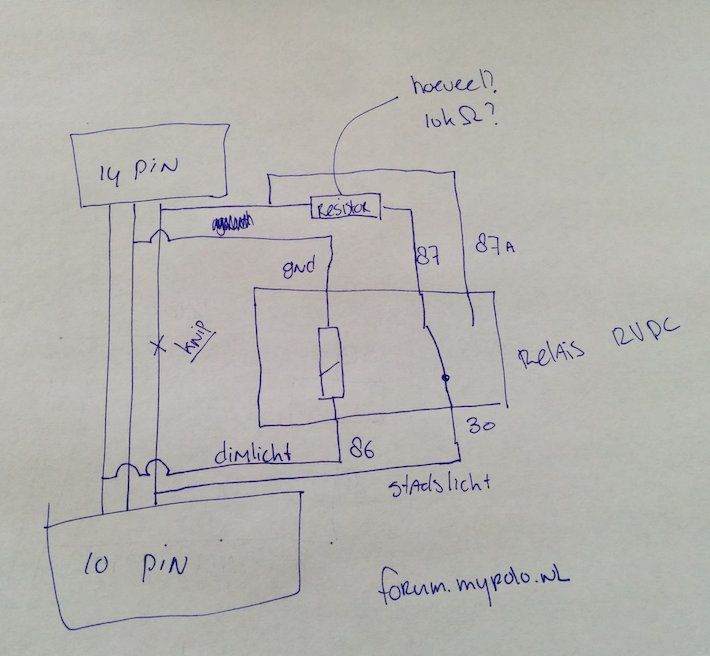 hoeveel?
10k Ω?
14 PiN
Resistor
gnd
87
87A
KNiP
Relais RVDC
dimlicht
86
30
stadslicht
10 PiN
forum.mypolo.NL